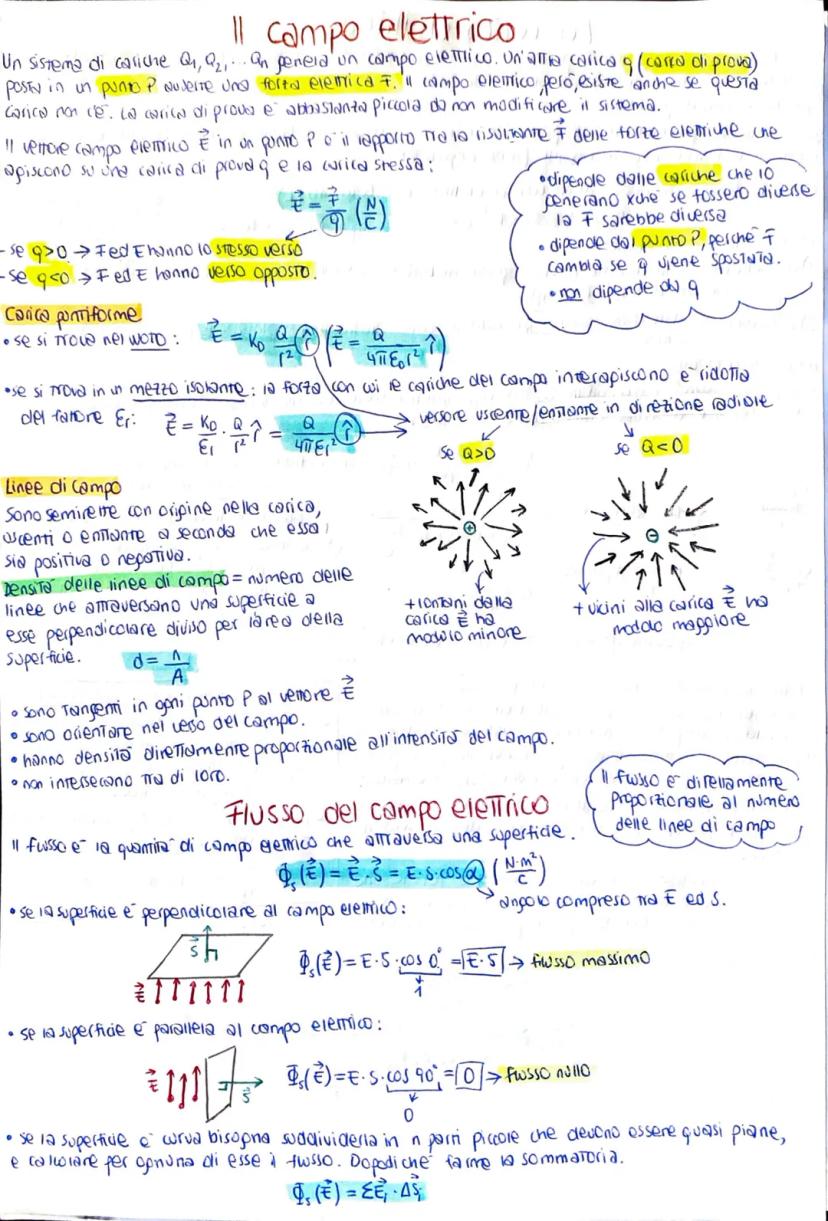 Il campo elettrico
Un sistema di cariche Q₁, Q₂, ... Qn genera un campo elettrico. Un'altra carica q (carica di prova)
posta in un punto P avverte una forza elettrica F. Il campo elettrico, però, esiste anche se questa
carica non c'è. La carica di prova è abbastanza piccola da non modificare il sistema.
Il vettore campo elettrico E⃗ in un punto P è il rapporto tra la risultante F⃗ delle forze elettriche che
agiscono su una carica di prova q e la carica stessa:
E⃗ = F⃗/q (N/C)
- se q>0 → F ed E hanno lo stesso verso
- se q<0 → F ed E hanno verso opposto.
• dipende dalle cariche che lo
generano xché se fossero diverse
la F sarebbe diversa
• dipende dal punto P, perché F
cambia se q viene spostata.
• non dipende da q
Carica puntiforme
• se si trova nel vuoto: E⃗ = K₀ Q/r² r̂ (E⃗ = Q/4πε₀r² r̂)
• se si trova in un mezzo isolante: la forza con cui le cariche del campo interagiscono è ridotta
del fattore εr: E⃗ = K₀/εr · Q/r² r̂ = Q/4πεr² r̂
versore uscente/entrante in direzione radiale
se Q>0
se Q<0
+
-
+ lontani dalla
carica E⃗ ha
modulo minore
+ vicini alla carica E⃗ ha
modulo maggiore
Linee di campo
Sono semirette con origine nella carica,
uscenti o entrante a seconda che essa
sia positiva o negativa.
Densità delle linee di campo = numero delle
linee che attraversano una superficie a
esse perpendicolare diviso per l'area della
superficie. d = n/A
• sono tangenti in ogni punto P al vettore E⃗
• sono orientate nel verso del campo.
• hanno densità direttamente proporzionale all'intensità del campo.
• non intersecano tra di loro.
Il flusso è direttamente
proporzionale al numero
delle linee di campo
Flusso del campo elettrico
Il flusso è la quantità di campo elettrico che attraversa una superficie.
Φs(E⃗) = E⃗ · S⃗ = E·S·cos α (N·m²/C)
angolo compreso tra E ed S.
• se la superficie è perpendicolare al campo elettrico:
S⃗
E⃗
Φs(E⃗) = E·S·cos 0° = E·S → flusso massimo
1
• se la superficie è parallela al campo elettrico:
E⃗
S⃗
Φs(E⃗) = E·S·cos 90° = 0 → flusso nullo
0
• se la superficie è curva bisogna suddividerla in n parti piccole che devono essere quasi piane,
e calcolare per ognuna di esse il flusso. Dopodiché farne la sommatoria.
Φs(E⃗) = ΣE⃗i · ΔS⃗i